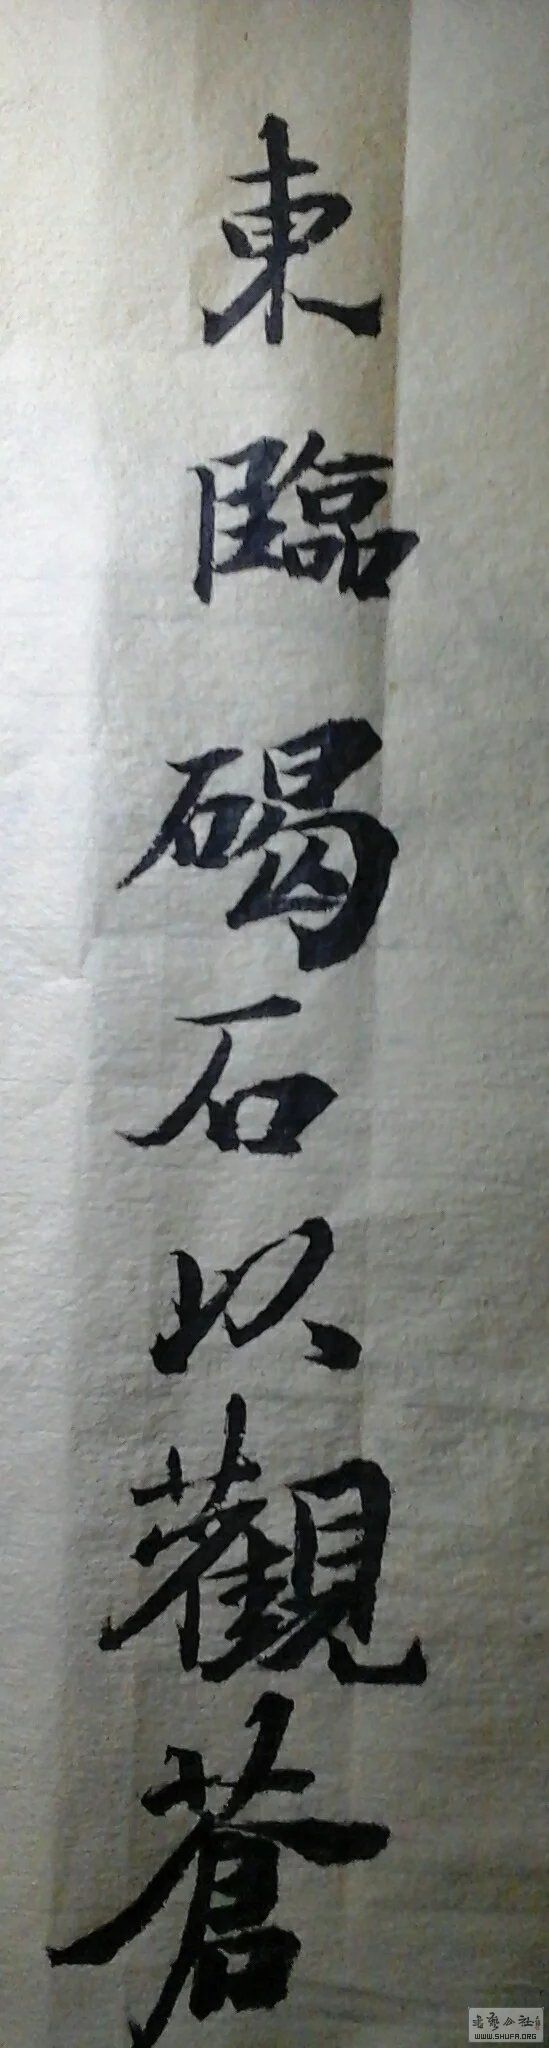 東臨碣石以觀蒼
书艺公社
WWW.SHUFA.ORG